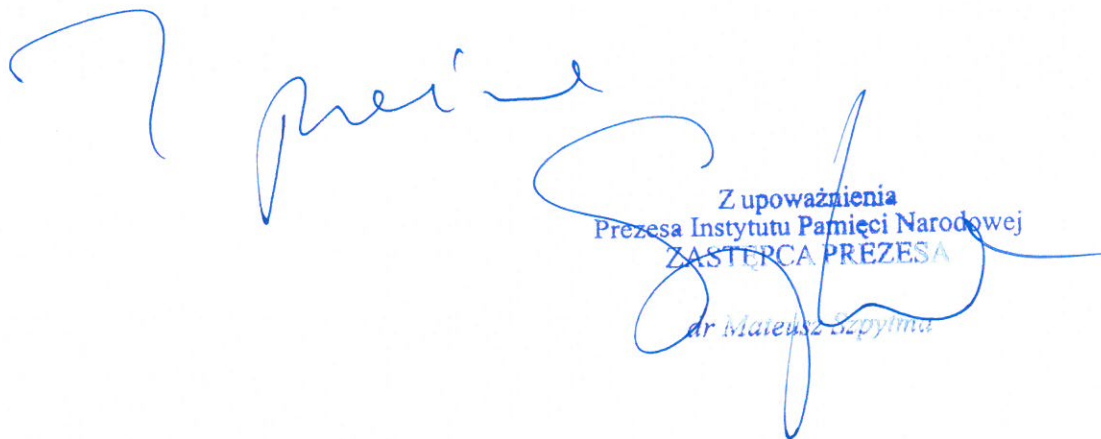 Z upoważnienia
Prezesa Instytutu Pamięci Narodowej
ZASTĘPCA PREZESA
dr Mateusz Szpytma